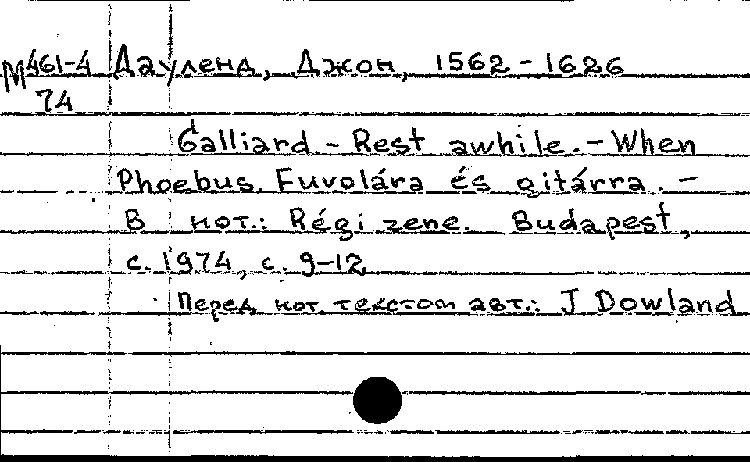 М461-4 Дауленд, Джон, 1562-1626
74
Galliard. - Rest awhile. - When
Phoebus. Fuvolára és gitárra. -
В нот.: Régi zene. Budapest,
с. 1974, с. 9-12
Перед нот. текстом авт.: J Dowland